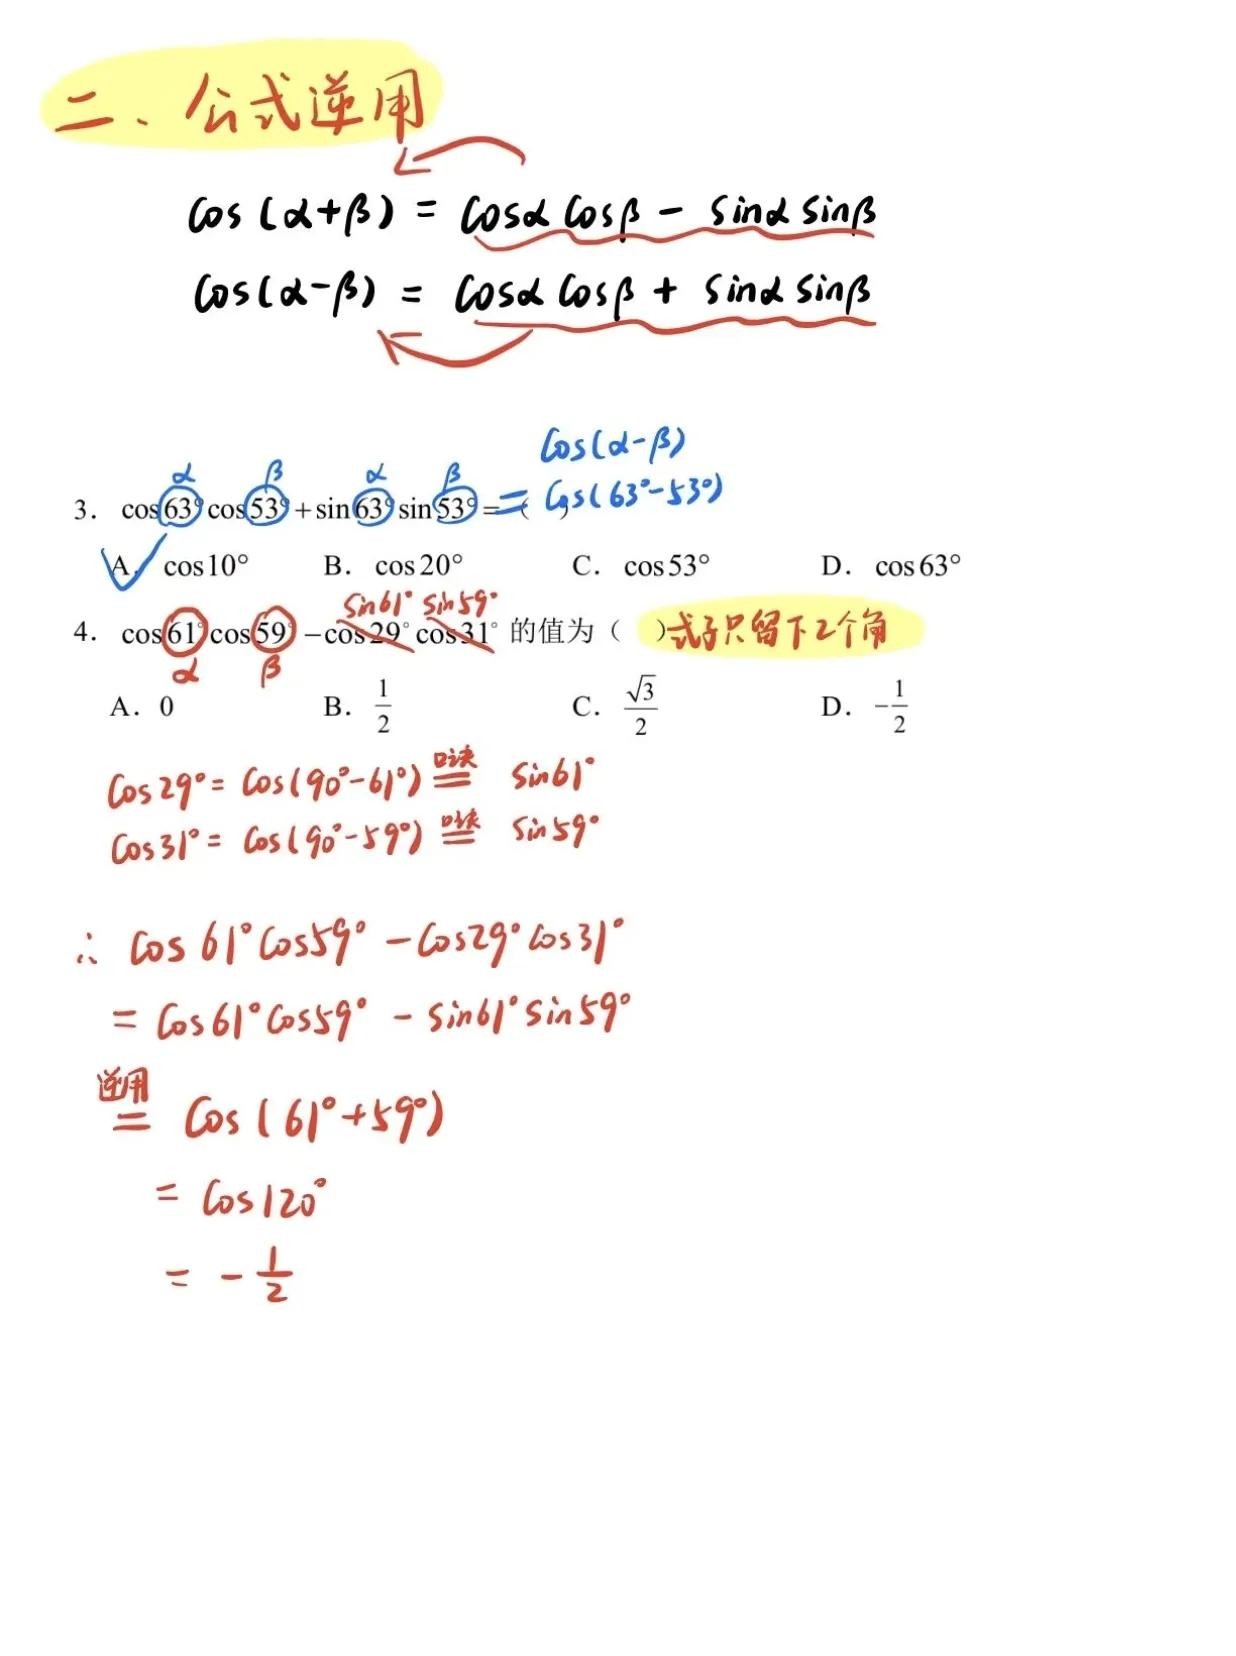 二、公式逆用
cos(α+β) = cosα cosβ - sinα sinβ
cos(α-β) = cosα cosβ + sinα sinβ
cos(α-β)
α β α β
3． cos63°cos53°+sin63°sin53°=（ ） = cos(63°-53°)
A． cos10° B． cos20° C． cos53° D． cos63°
sin61° sin59°
4． cos61°cos59°−cos29°cos31° 的值为（ ） 式子只留下2个角
α β
A．0 B． 1/2 C． √3/2 D． −1/2
口诀
cos29° = cos(90°-61°) = sin61°
口诀
cos31° = cos(90°-59°) = sin59°
∴ cos61°cos59° - cos29°cos31°
= cos61°cos59° - sin61°sin59°
逆用
= cos(61°+59°)
= cos120°
= - 1/2